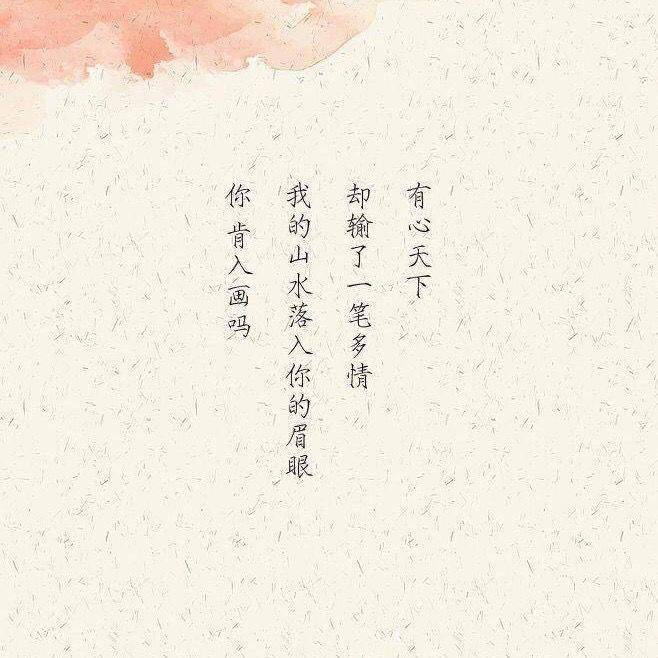 有心天下
却输了一笔多情
我的山水落入你的眉眼
你肯入画吗